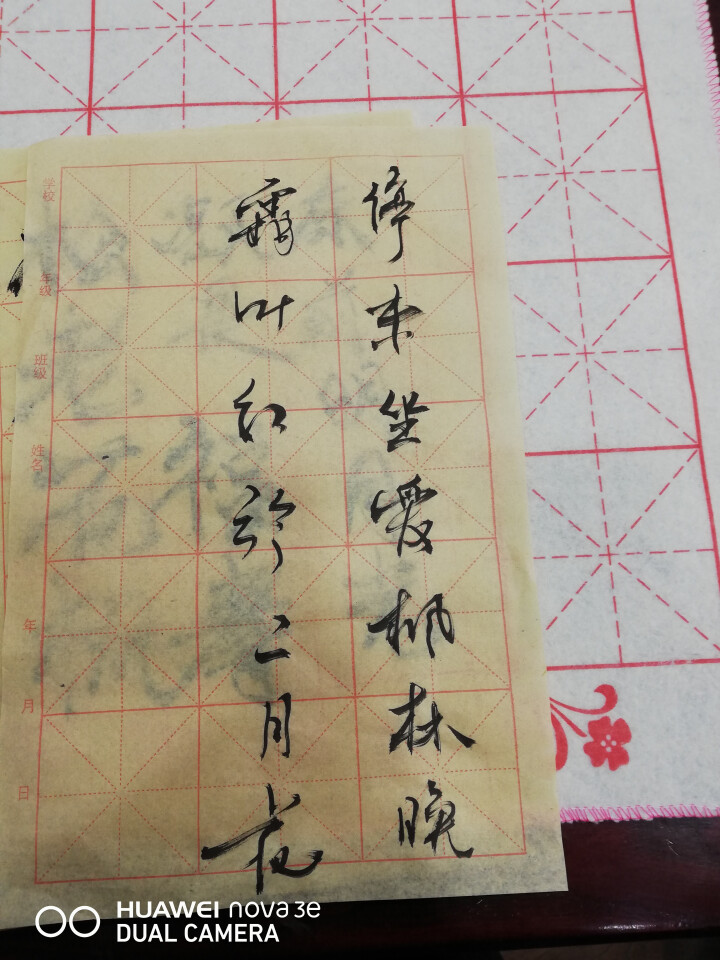 停车坐爱枫林晚
霜叶红於二月花
学校
年级
班级
姓名
年
月
日
HUAWEI nova 3e
DUAL CAMERA